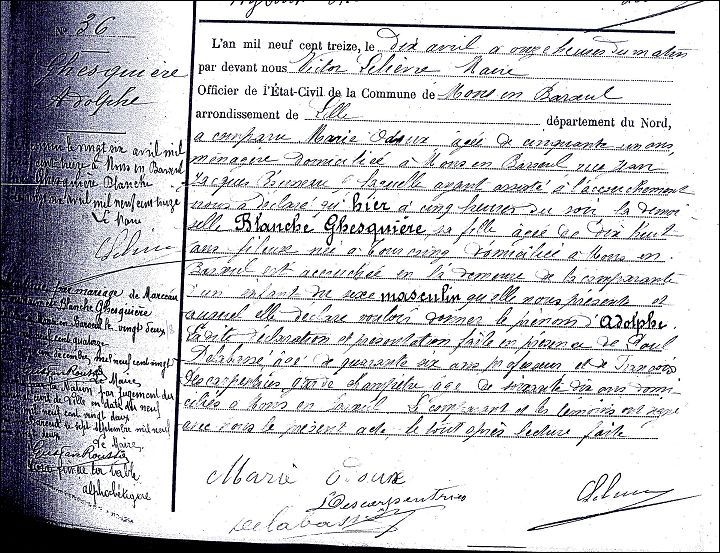 N° 36
Ghesquière
Adolphe
L'an mil neuf cent treize, le dix avril à onze heures du matin
par devant nous Victor Lelièvre Maire
Officier de l'État-Civil de la Commune de Mons en Barœul
arrondissement de Lille département du Nord,
a comparu Marie Odoux âgée de cinquante un ans,
ménagère domiciliée à Mons en Barœul rue Jean
Jacques Rousseau laquelle ayant assisté à l'accouchement
nous a déclaré qu'hier à cinq heures du soir la demoi
selle Blanche Ghesquière sa fille âgée de dix huit
ans fileuse née à Tourcoing domiciliée à Mons en
Barœul est accouchée en la demeure de la comparante
d'un enfant du sexe masculin qu'elle nous présente et
auquel elle déclare vouloir donner le prénom d'Adolphe.
Ladite déclaration et présentation faite en présence de Paul
âgé de quarante six ans professeur et de François
Descarpentries garde champêtre âgé de soixante dix ans domi
ciliés à Mons en Barœul. Comparant et les témoins ont signé
avec nous le présent acte, le tout après lecture faite
le vingt six avril mil
neuf cent treize à Mons en Barœul
Ghesquière Blanche
avril mil neuf cent treize
Le Maire
mariage de Marceau
Blanche Ghesquière
Mons en Barœul le vingt deux
cent quatorze
décembre mil neuf cent vingt
Le Maire
la Nation par jugement du
de Lille en date du neuf
neuf cent vingt deux
le sept septembre mil neuf
deux
Le Maire,
table
alphabétique
Marie Odoux
Descarpentries